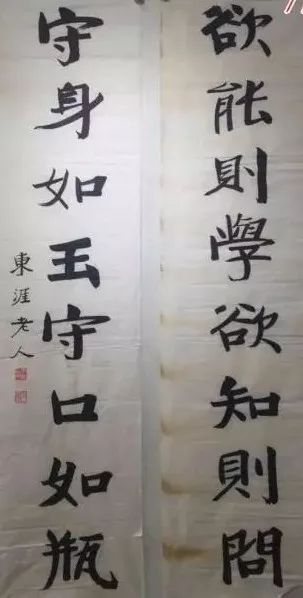 欲能則學欲知則問
守身如玉守口如瓶
東涯老人